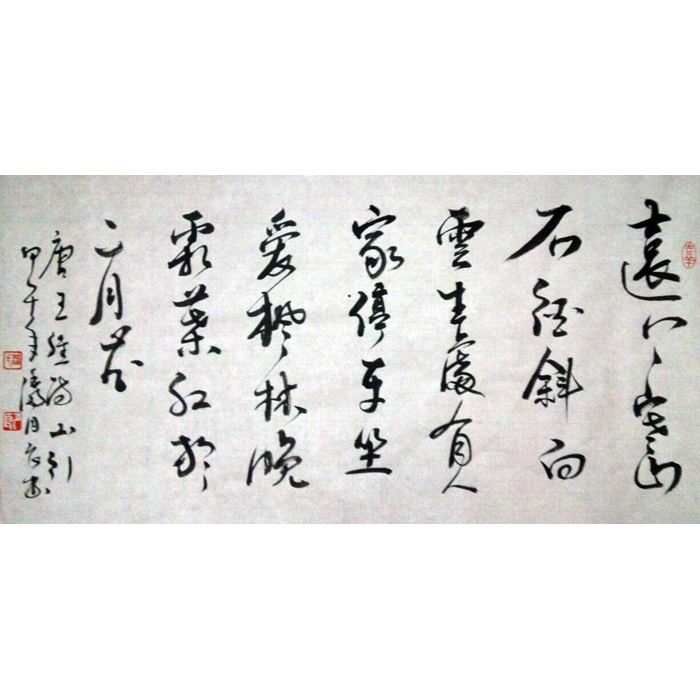 遠上寒山
石徑斜白
雲生處有人
家停車坐
愛楓林晚
霜葉紅於
二月花
唐王維詩山行
甲午年月書